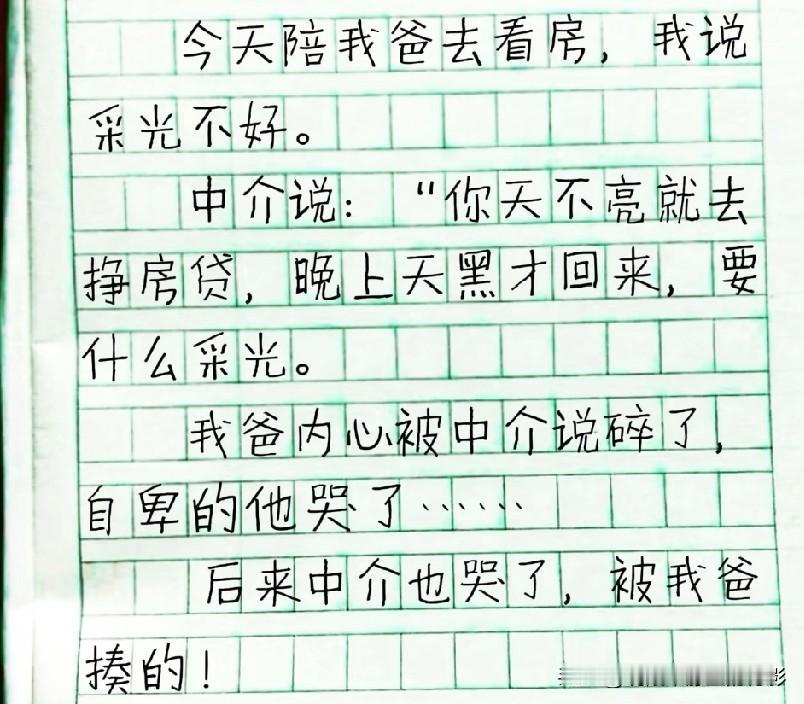 今天陪我爸去看房，我说
采光不好。
中介说：“你天不亮就去
挣房贷，晚上天黑才回来，要
什么采光。
我爸内心被中介说碎了，
自卑的他哭了……
后来中介也哭了，被我爸
揍的！